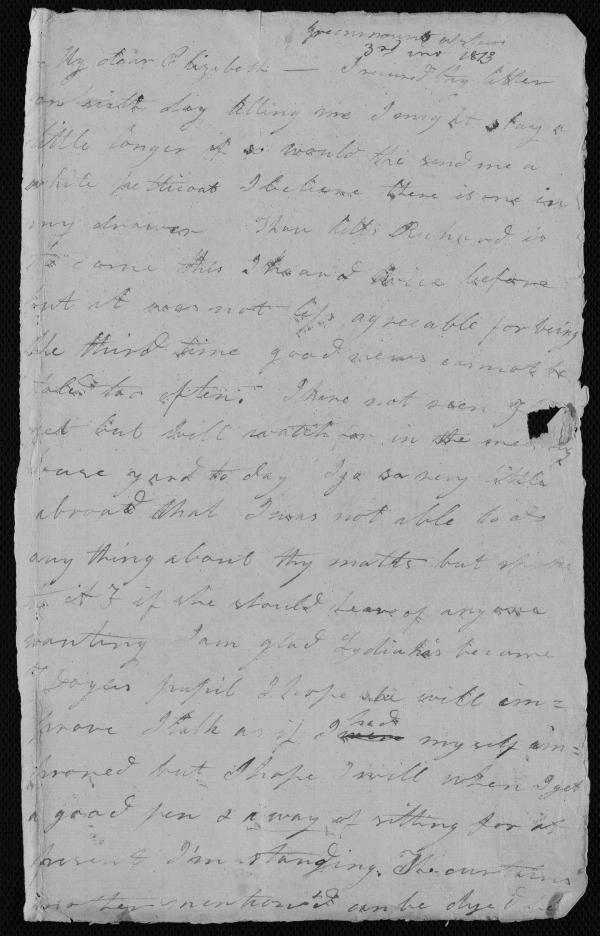 3rd 1813
My dear Elizabeth — I received thy letter
on sixth day telling me I might stay a
little longer if so would thee send me a
white petticoat I believe there is one in
my drawer Thou tells Richard is
to come this I heard twice before
but it was not less agreeable for being
the third time good news cannot be
told too often. I have not seen
yet but will watch for in the
house yard to day I go so very little
abroad that I was not able to do
any thing about thy matts but
to if she should hear of any one
wanting I am glad Lydia has become
pupil I hope she will im=
prove I talk as if I had myself im=
proved but I hope I will when I get
a good pen & a way of sitting for at
present I'm standing. The curtains
mother mention'd can be dyed